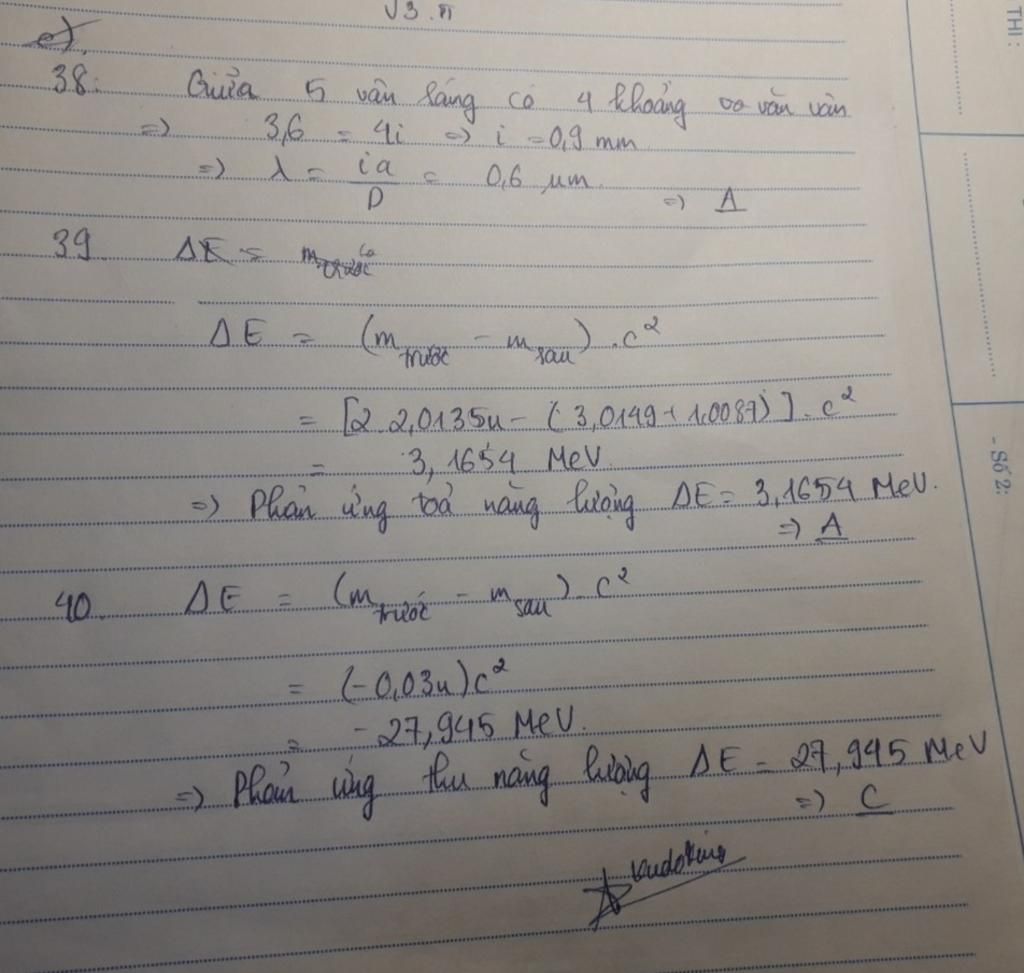 √3.π
38. Giữa 5 vân sáng có 4 khoảng vân
=> 3,6 = 4i => i = 0,9 mm
=> λ = ia/D = 0,6 μm
=> A
39 ΔE =
ΔE = (m trước - m sau).c²
= [2.2,0135u - (3,0149+1,0087)].c²
= 3,1654 MeV
=> Phản ứng toả năng lượng ΔE = 3,1654 MeV.
=> A
40. ΔE = (m trước - m sau).c²
= (-0,03u)c²
= -27,945 MeV.
=> Phản ứng thu năng lượng ΔE = 27,945 MeV
=> C
THI:
- Số 2: